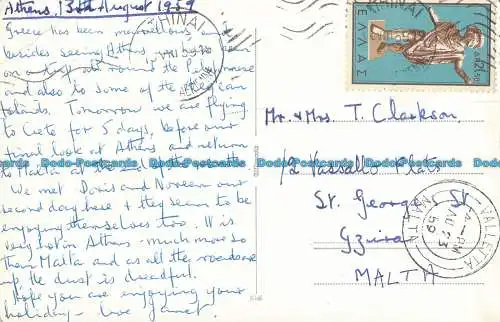 Athens, 13th August 1959
Greece has been marvellous and
besides seeing Athens we have been
on a trip round the Peloponnese
and also to some of the Aegean
Islands. Tomorrow we are flying
to Crete for 5 days, before our
final look at Athens and return
to Malta at the end of the month.
We met Doris and Noreen our
second day here & they seem to be
enjoying themselves too. It is
very hot in Athens - much more so
than Malta and as all the roads are
up the dust is dreadful.
Hope you are enjoying your
holiday - love Janet.
Mr. & Mrs. T. Clarkson,
1/2 Vassallo Flats
St. George's St
Gzira
MALTA
ΕΛΛΑΣ
ATHINAI
VALLETTA
MALTA
PM
AU 23
59
Dodo-Postcards Dodo-Postcards Dodo-Postcards Dodo-Postcards